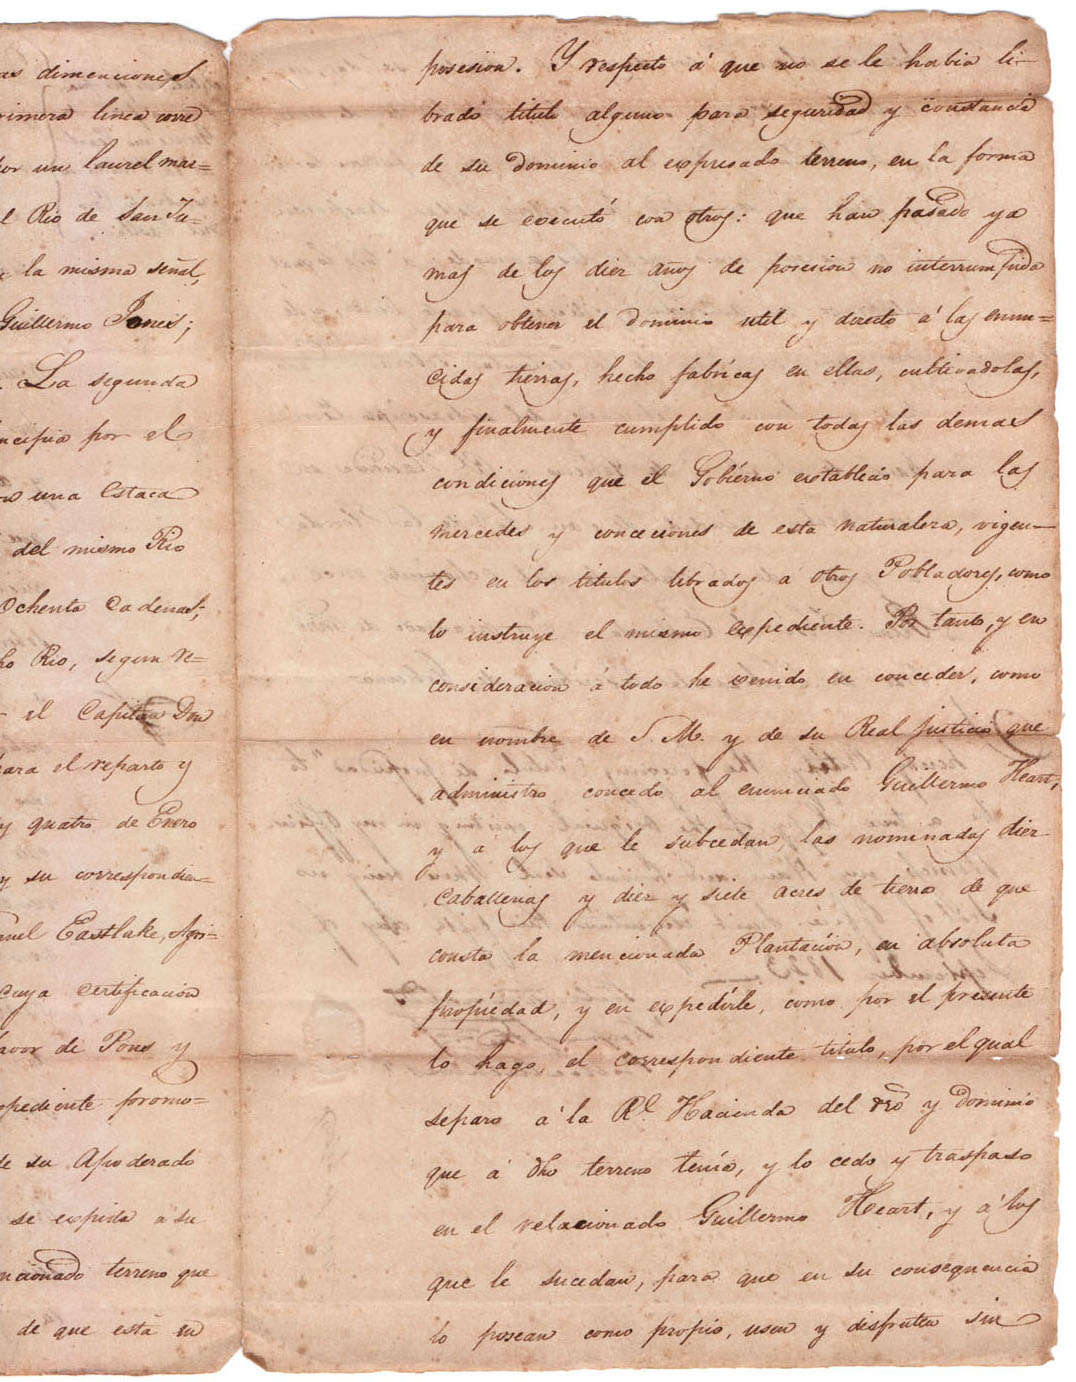 as dimenciones
rimera linea corre
or un laurel mar=
l Rio de San Ju-
la misma señal,
Guillermo Jones;
. La segunda
ncipia por el
una Estaca
del mismo Rio
Ochenta Cadenas,
ho Rio, segun re=
el Capitan Don
para el reparto y
y quatro de Enero
y su correspondien-
nuel Eastlake, Agri-
cuya certificación
avor de Pons y
xpediente foromo-
de su Apoderado
se expida a su
ncionado terreno que
de que está en
posesion. Y respecto á que no se le habia li-
brado titulo alguno para seguridad y constancia
de su Dominio al expresado terreno, en la forma
que se executó con otros: que han pasado ya
mas de los diez años de posesion no interrumpida
para obtener el Dominio util y directo á las enun-
cidas tierras, hecho fabricas en ellas, cultivadolas,
y finalmente cumplido con todas las demas
condiciones que el Gobierno estableció para las
mercedes y conceciones de esta naturaleza, vigen-
tes en los titulos librados á otros Pobladores, como
lo instruye el mismo expediente. Por tanto, y en
consideracion á todo he venido en conceder, como
en nombre de S. M. y de su Real justicia que
administro concedo al enunciado Guillermo Heart,
y á los que le subcedan, las nominadas diez
Caballerias y diez y siete acres de tierra de que
consta la mencionada Plantacion, en absoluta
propiedad, y en expedirle, como por el presente
lo hago, el correspondiente titulo, por el qual
separo á la Rl. Hacienda del dro y Dominio
que á dho terreno tenia, y lo cedo y traspaso
en el relacionado Guillermo Heart, y á los
que le sucedan, para que en su consequencia
lo posean como propio, usen y disfruten sin